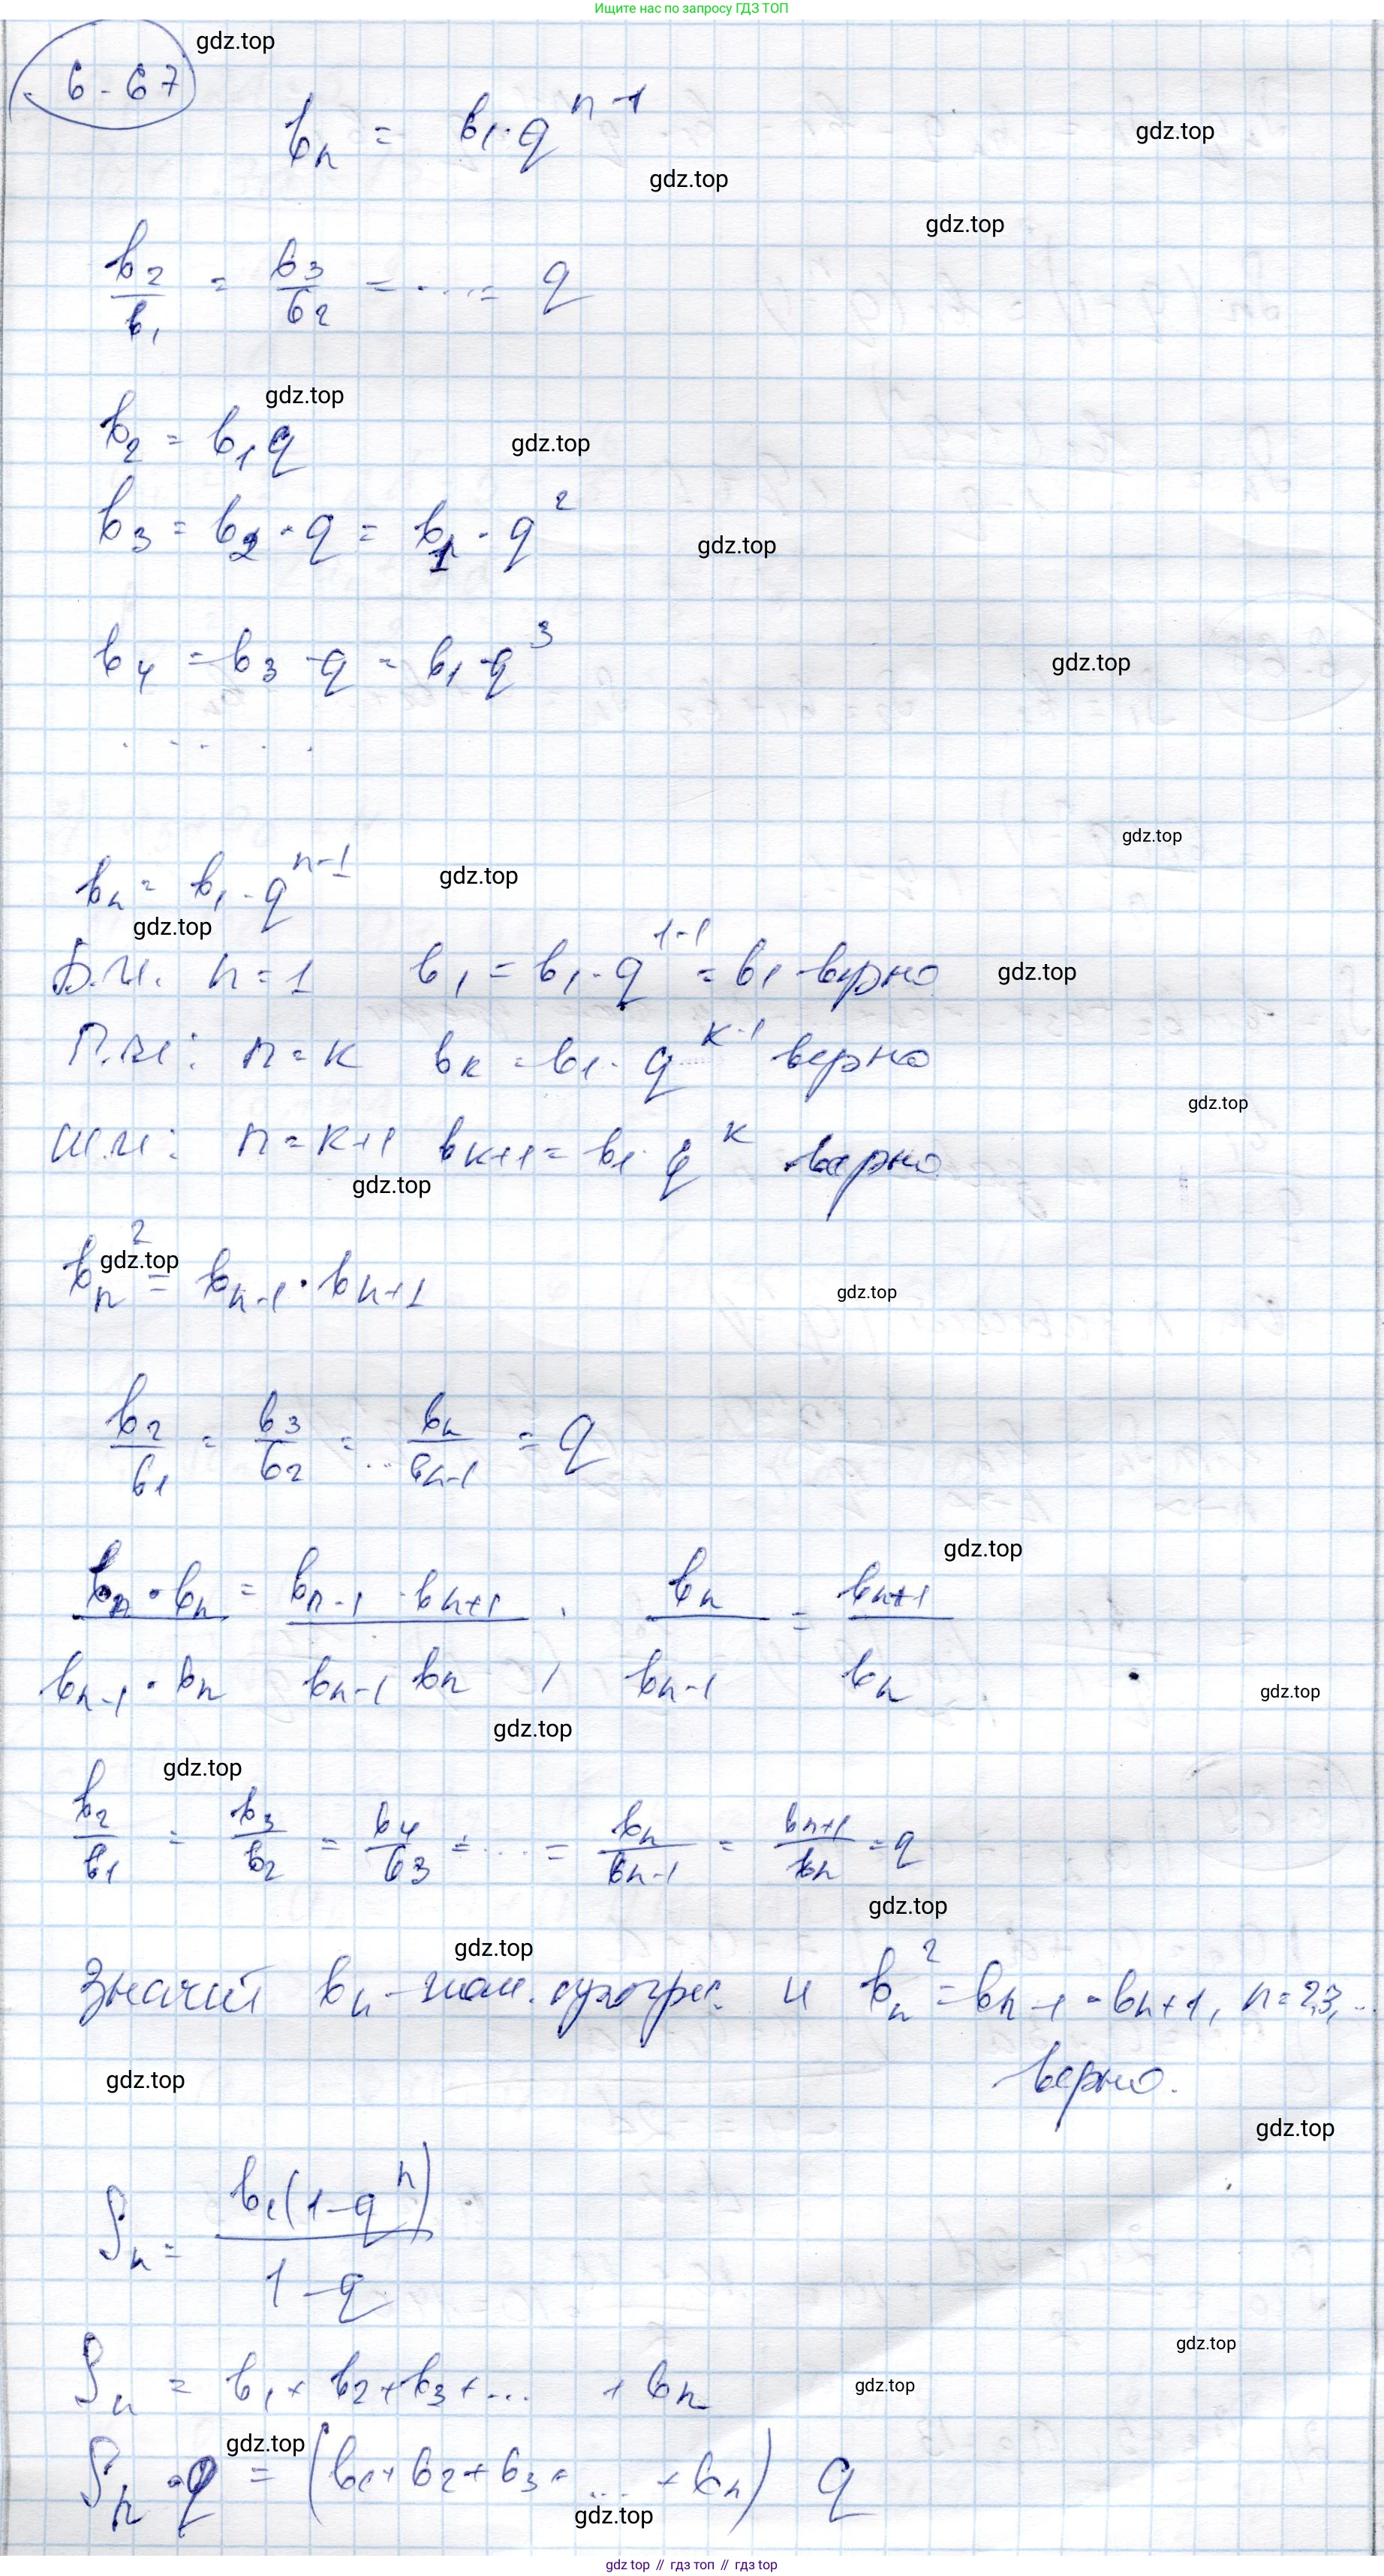 Ищите нас по запросу ГДЗ ТОП
gdz.top
6-67
bₙ = b₁·q^(n-1)
gdz.top
gdz.top
gdz.top
b₂/b₁ = b₃/b₂ = .... = q
gdz.top
b₂ = b₁q
gdz.top
b₃ = b₂·q = b₁·q²
gdz.top
b₄ = b₃·q = b₁·q³
gdz.top
. . . . .
gdz.top
bₙ = b₁·q^(n-1)
gdz.top
gdz.top
Б.И. n=1 b₁ = b₁·q^(1-1) = b₁ верно
gdz.top
П.И: n=k bₖ = b₁·q^(k-1) верно
gdz.top
Ш.И: n=k+1 bₖ₊₁ = b₁·q^k верно
gdz.top
bₙ² = bₙ₋₁·bₙ₊₁
gdz.top
gdz.top
b₂/b₁ = b₃/b₂ = ... bₙ/bₙ₋₁ = q
gdz.top
bₙ·bₙ/bₙ₋₁·bₙ = bₙ₋₁·bₙ₊₁/bₙ₋₁ bₙ ; bₙ/bₙ₋₁ = bₙ₊₁/bₙ
gdz.top
gdz.top
gdz.top
b₂/b₁ = b₃/b₂ = b₄/b₃ = ... = bₙ/bₙ₋₁ = bₙ₊₁/bₙ = q
gdz.top
gdz.top
Значит bₙ - и bₙ² = bₙ₋₁·bₙ₊₁, n=2,3,...
верно.
gdz.top
gdz.top
Sₙ = b₁(1-q^n)/1-q
gdz.top
Sₙ = b₁+b₂+b₃+... +bₙ
gdz.top
gdz.top
Sₙ·q = (b₁+b₂+b₃+ ... +bₙ) q
gdz.top
gdz top // гдз топ // гдз top